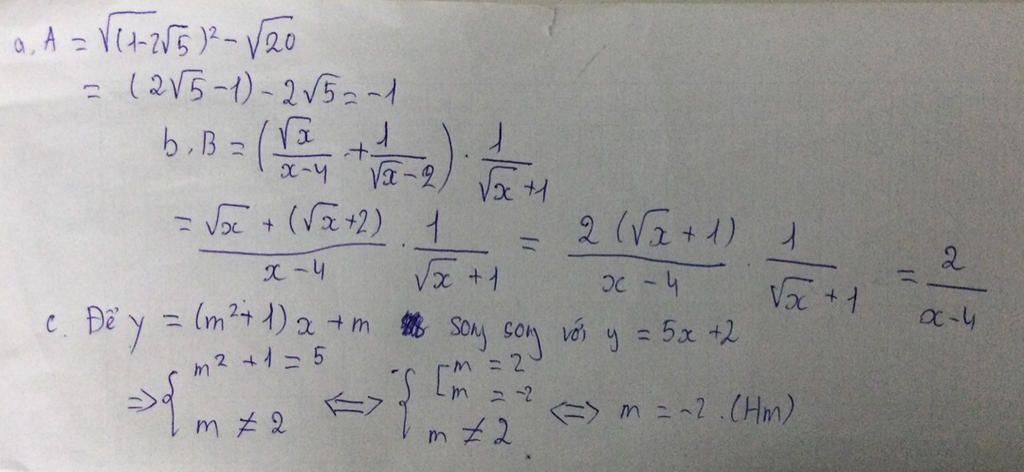 a, A = √(1-2√5)² - √20
= (2√5-1) - 2√5 = -1
b, B = (√x/(x-4) + 1/(√x-2)) · 1/(√x+1)
= (√x + (√x+2))/(x-4) · 1/(√x+1) = 2(√x+1)/(x-4) · 1/(√x+1) = 2/(x-4)
c. Để y = (m²+1)x + m song song với y = 5x+2
=> { m² + 1 = 5 ; m ≠ 2 <=> { [ m = 2 ; m = -2 ; m ≠ 2 <=> m = -2 . (Hm)